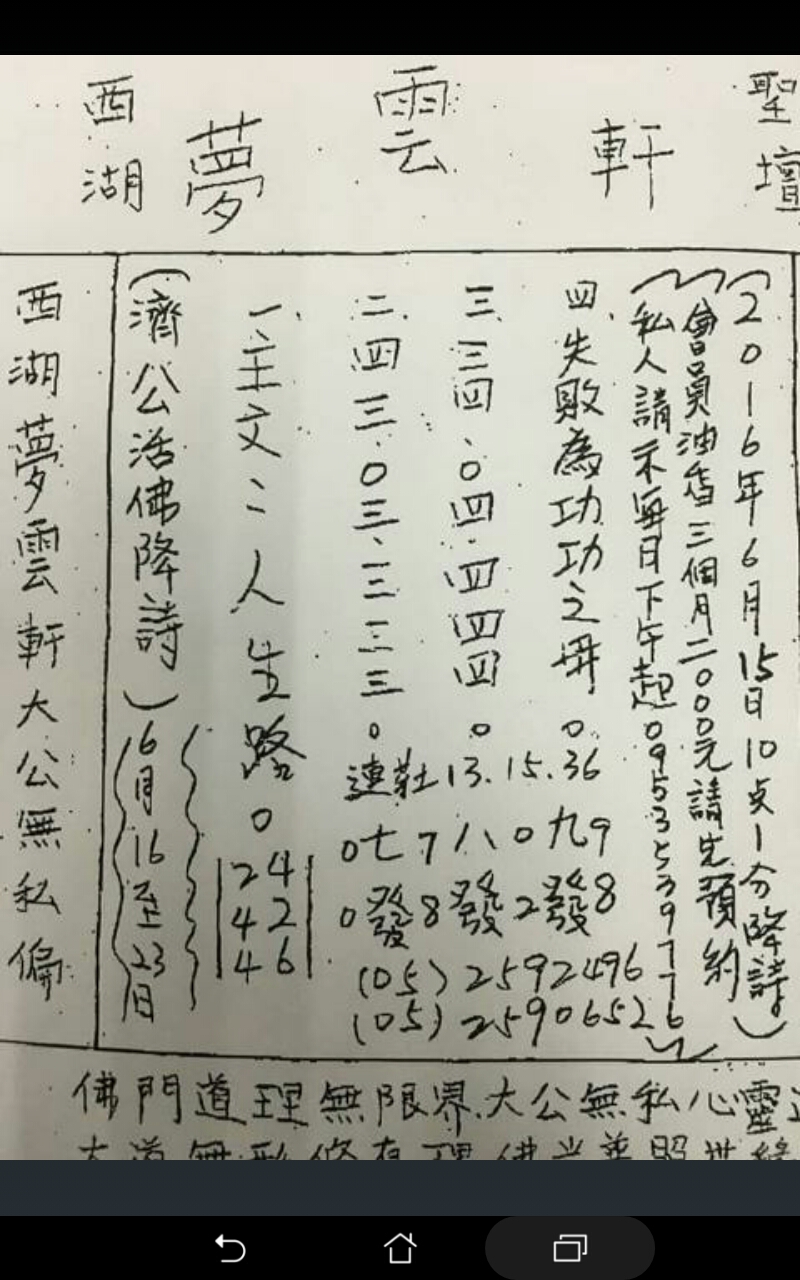 聖壇
軒
雲
夢
西湖
(2016年6月15日10点1分降詩)
會員油香三個月二000元請先預約
私人請示每日下午起0953539776
四、失敗為功功之冊。
三、三四、0四.四四四。
二.四三.0三、三三三。
一、主文二人生路0
連莊13.15.36
0七7八0九9
0發8發2發8
(05)2592496
(05)2590652
24
42
46
(濟公活佛降詩)
6月16至23日
西湖夢雲軒大公無私偏
佛門道理無限界.大公無私心靈